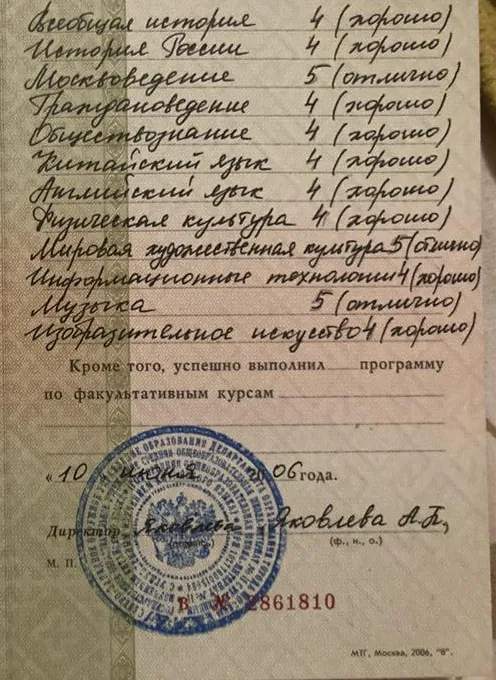 Всеобщая история 4 (хорошо)
История России 4 (хорошо)
Москвоведение 5 (отлично)
Граждановедение 4 (хорошо)
Обществознание 4 (хорошо)
Китайский язык 4 (хорошо)
Английский язык 4 (хорошо)
Физическая культура 4 (хорошо)
Мировая художественная культура 5 (отлично)
Информационные технологии 4 (хорошо)
Музыка 5 (отлично)
Изобразительное искусство 4 (хорошо)
Кроме того, успешно выполнил программу
по факультативным курсам
«10 » июня 2006 года.
Директор Яковлева Яковлева А.П.
(ф., и., о.)
М. П.
В № 2861810
МТГ, Москва, 2006, "В".